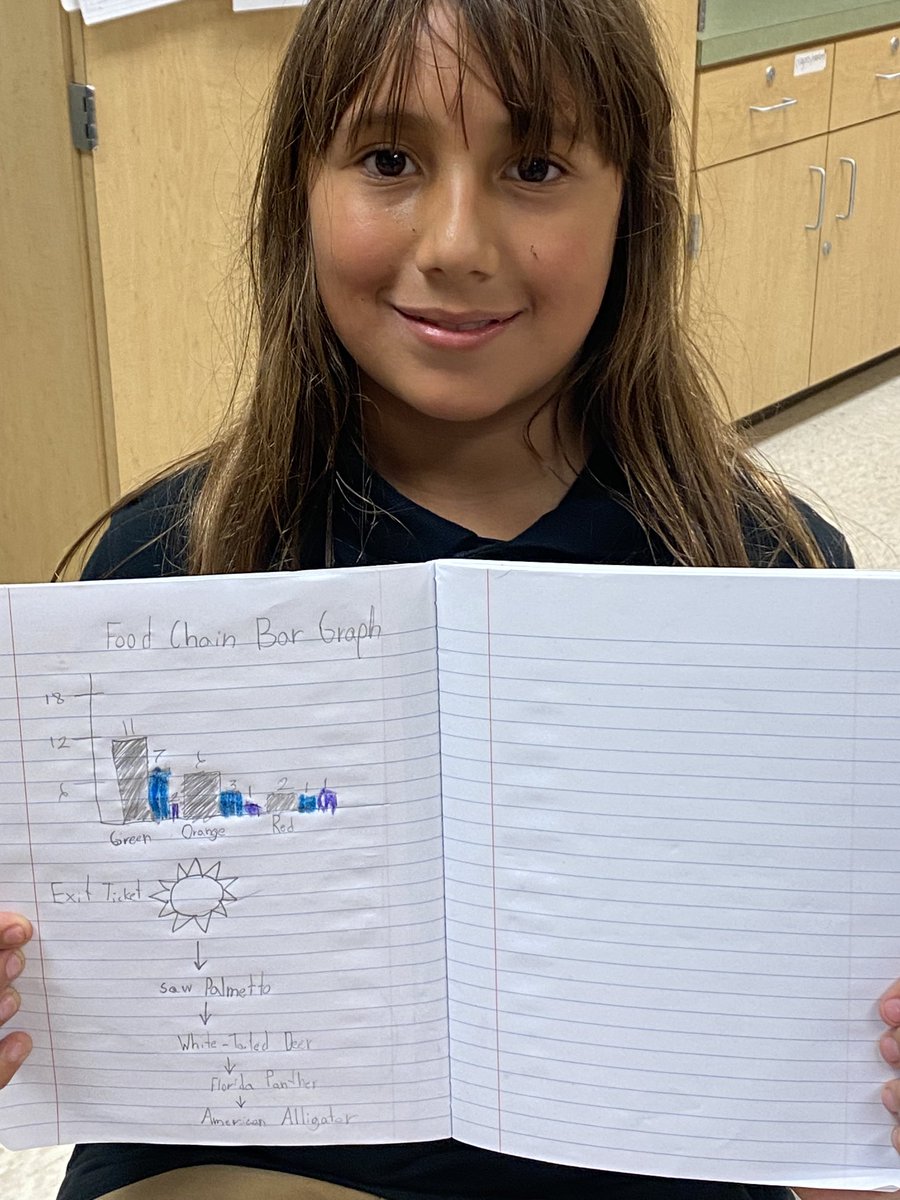 Food Chain Bar Graph
18
12
6
11
7
2
3
1
2
1
1
Green Orange Red
Exit Ticket
saw Palmetto
White-Tailed Deer
Florida Panther
American Alligator